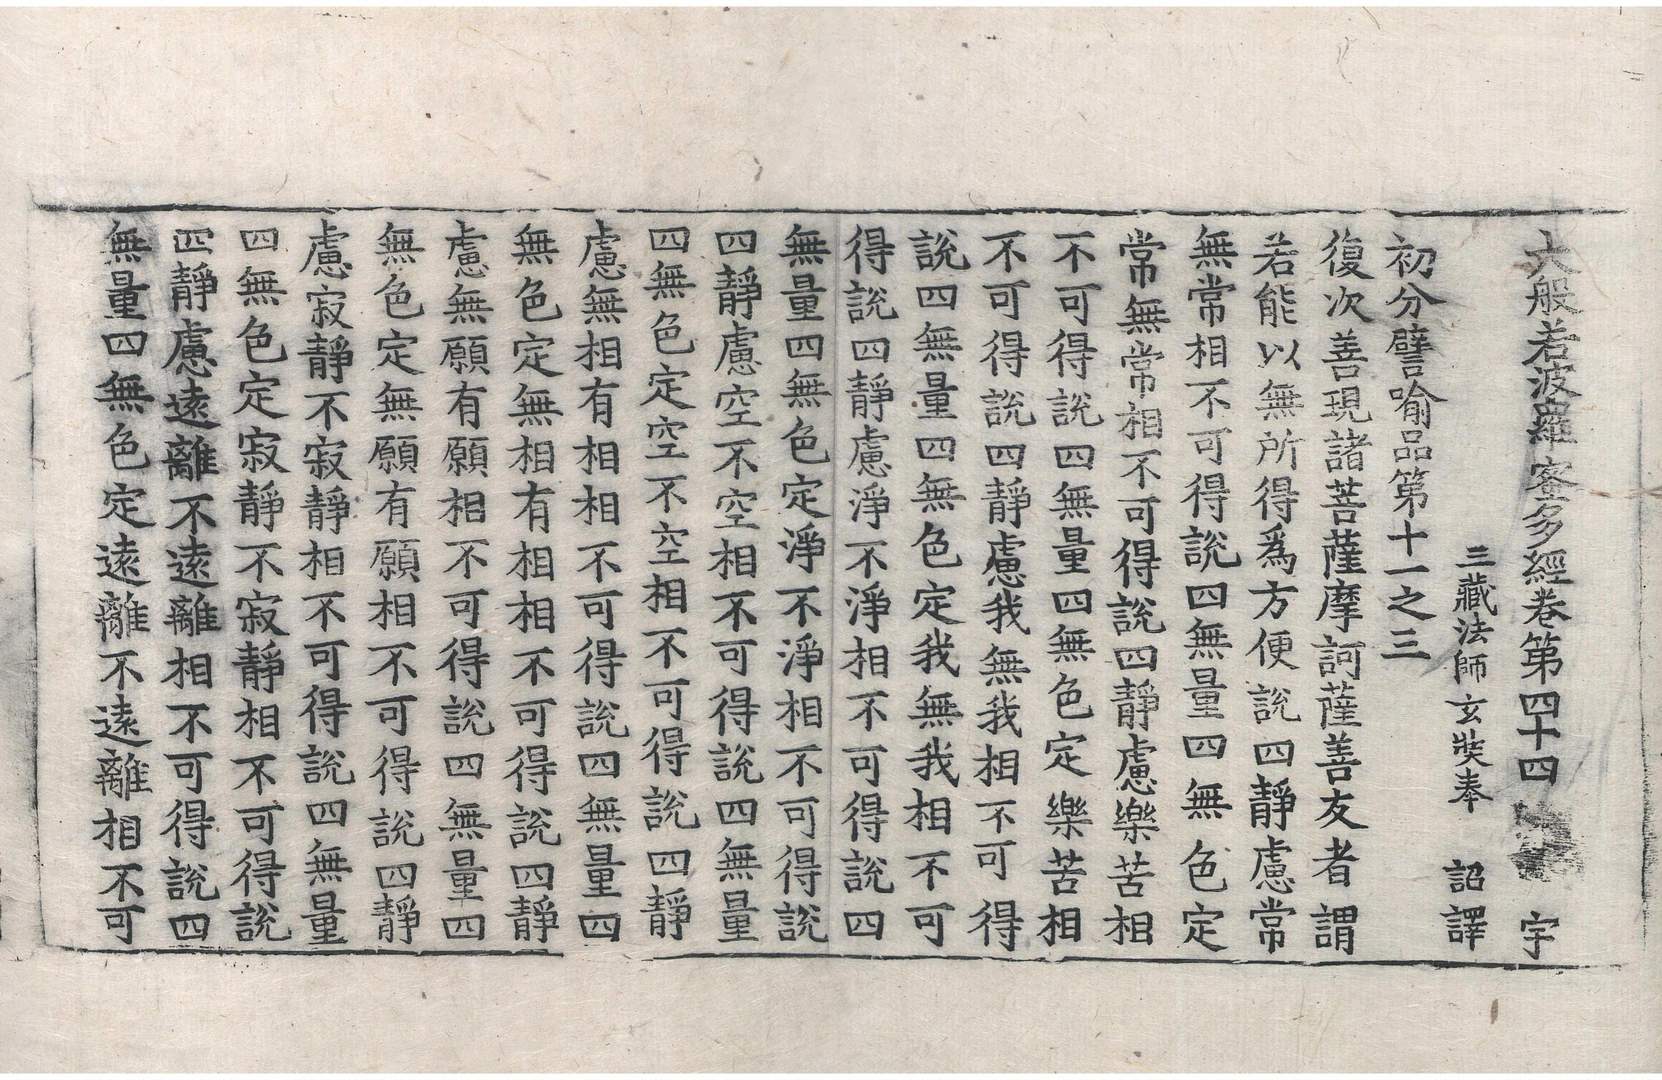 大般若波羅蜜多經卷第四十四 字
三藏法師玄奘奉 詔譯
初分譬喻品第十一之三
復次善現諸菩薩摩訶薩善友者謂
若能以無所得爲方便說四靜慮常
無常相不可得說四無量四無色定
常無常相不可得說四靜慮樂苦相
不可得說四無量四無色定樂苦相
不可得說四靜慮我無我相不可得
說四無量四無色定我無我相不可
得說四靜慮淨不淨相不可得說四
無量四無色定淨不淨相不可得說
四靜慮空不空相不可得說四無量
四無色定空不空相不可得說四靜
慮無相有相相不可得說四無量四
無色定無相有相相不可得說四靜
慮無願有願相不可得說四無量四
無色定無願有願相不可得說四靜
慮寂靜不寂靜相不可得說四無量
四無色定寂靜不寂靜相不可得說
四靜慮遠離不遠離相不可得說四
無量四無色定遠離不遠離相不可